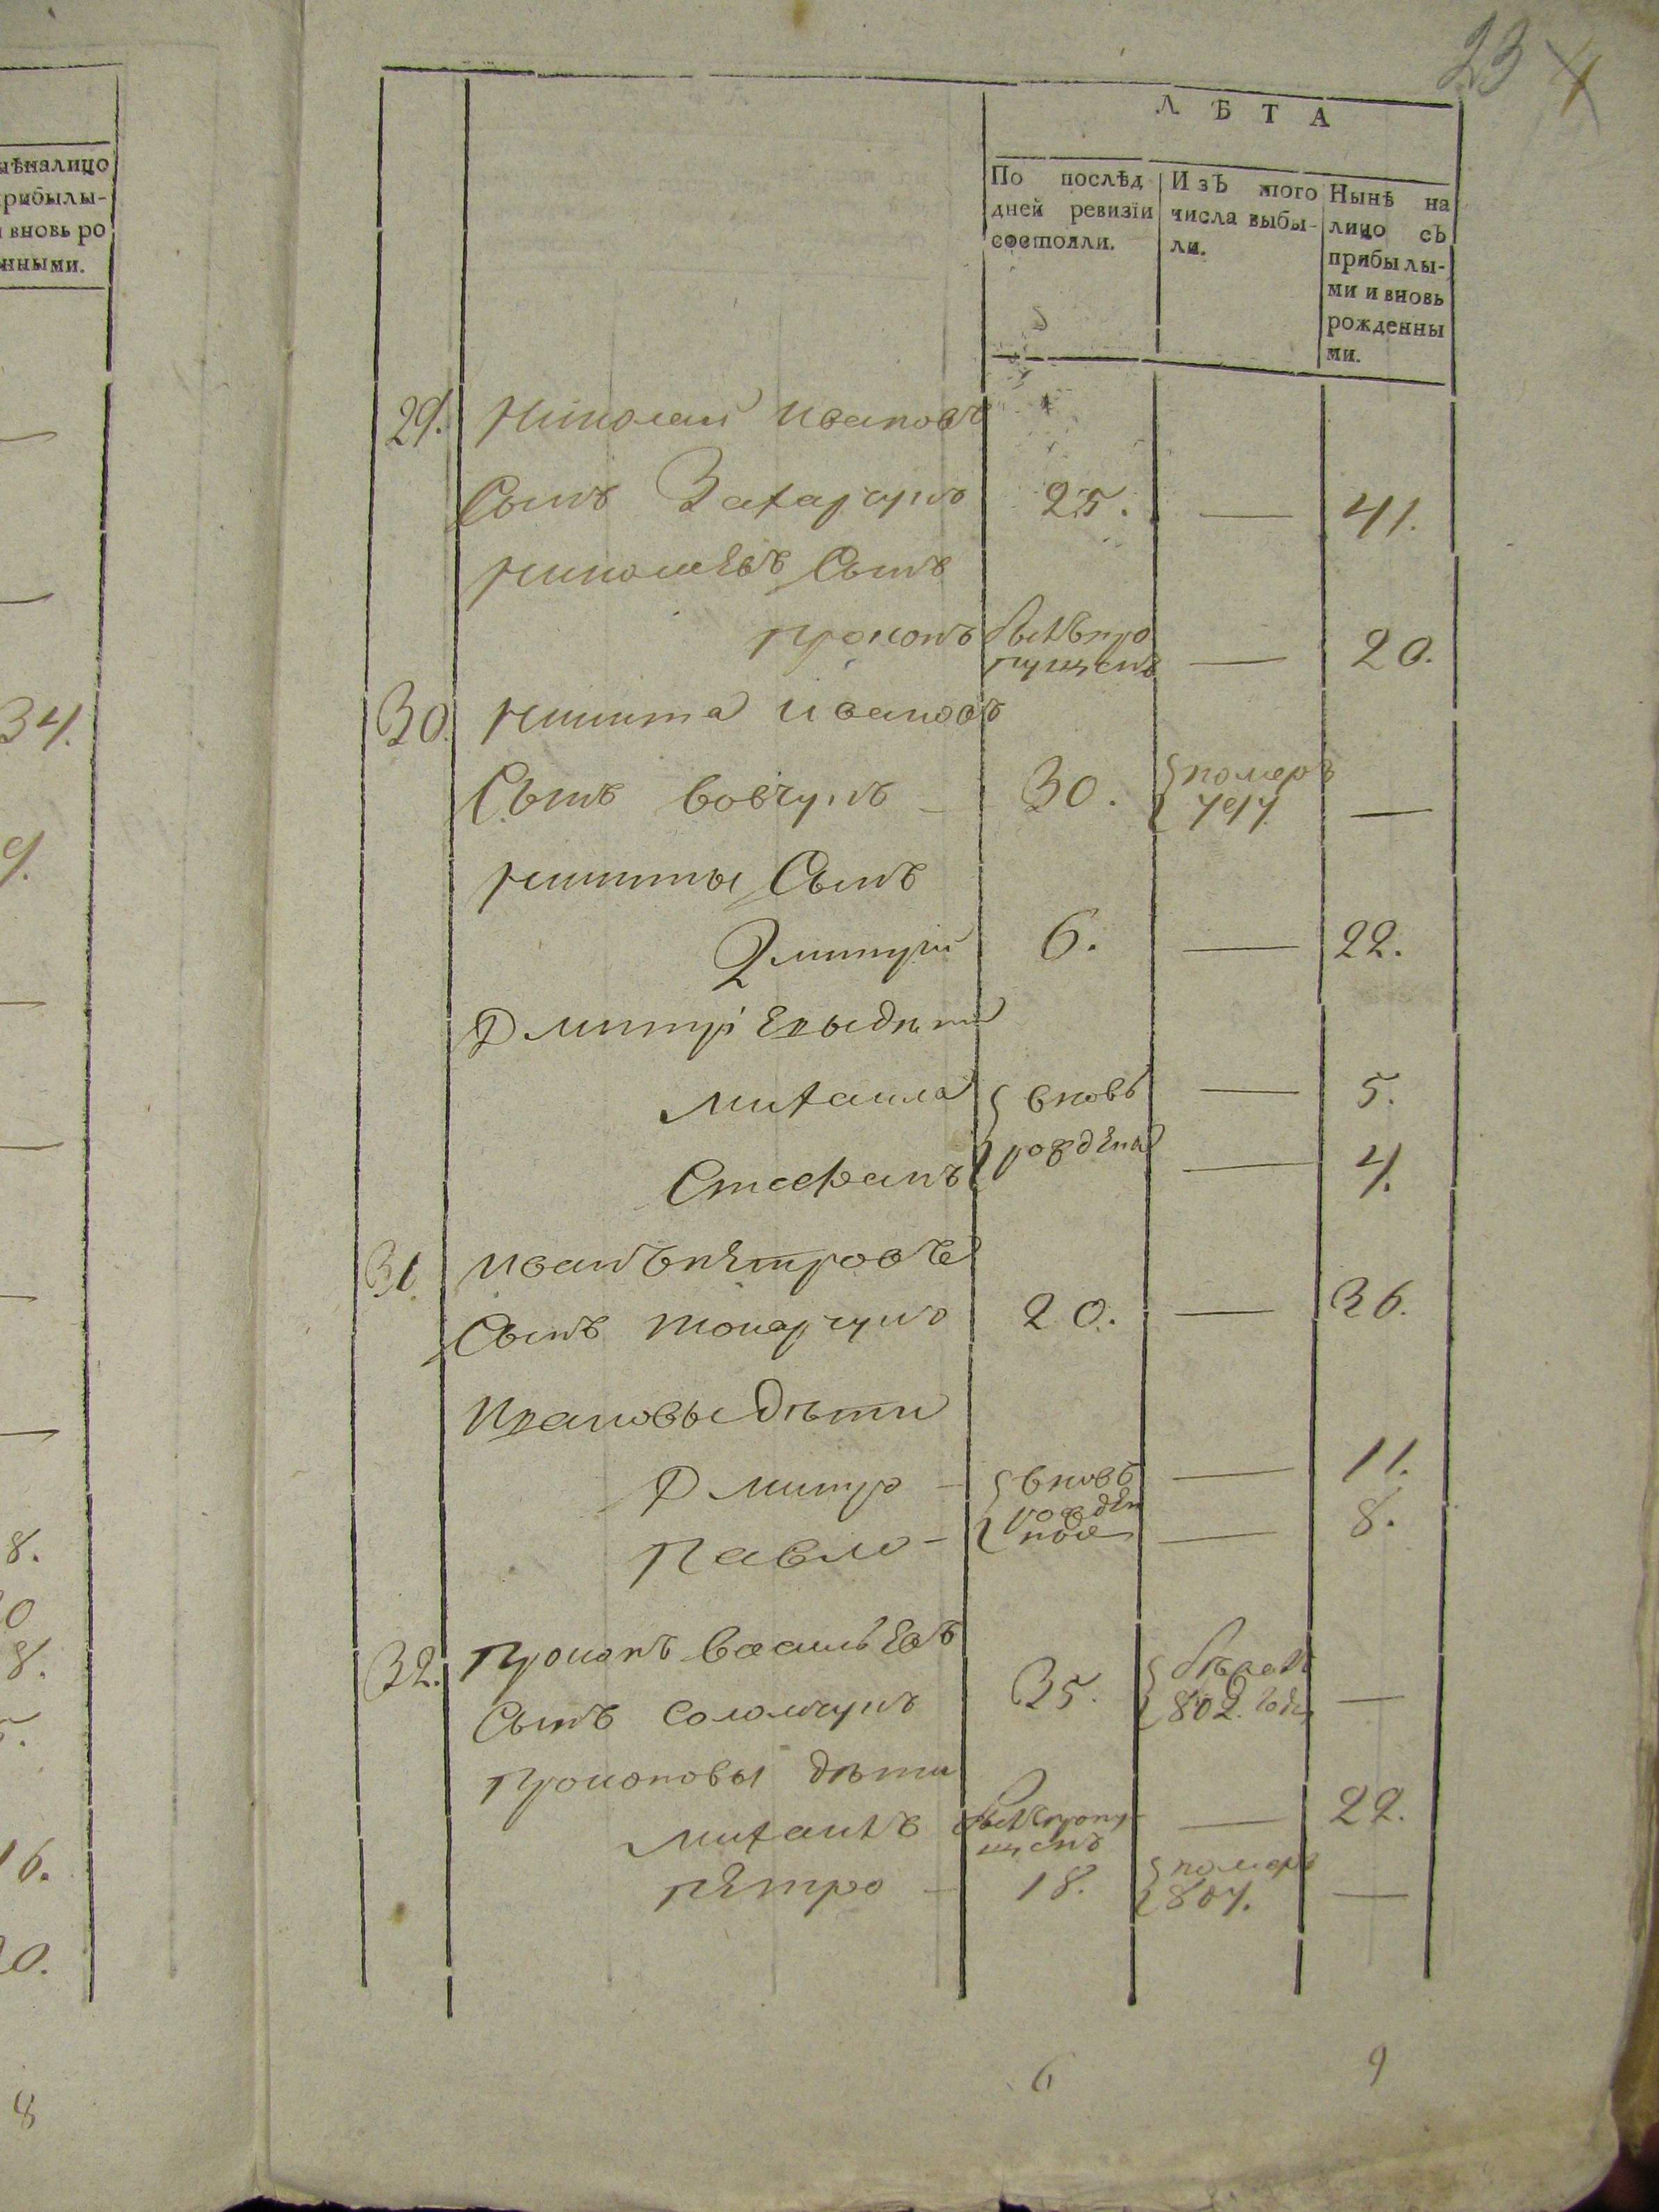 23
ЛѢТА
По послѣд
дней ревизіи
состояли.
ИзЪ того
числа выбы-
ли.
Нынѣ на
лицо сЪ
прибылы-
ми и вновь
рожденны
ми.
ѣналицо
рибылы-
вновь ро
нными.
29. Николай Ивановъ
Сынъ Захарчукъ 25. — 41.
Николаевъ Сынъ
Прокопъ былъ про
пущенъ — 20.
30. Никита Ивановъ
Сынъ Вовчукъ 30. померъ
797 —
Никиты Сынъ
Дмитрій 6. — 22.
Дмитріевы дѣти
Михаила вновь — 5.
Стефанъ рождены — 4.
31. Иванъ Петровъ
Сынъ Токарчукъ 20. — 36.
Ивановы дѣти
Дмитро - вновь — 11.
Павло - рожден
ные — 8.
32. Прокопъ Васильевъ
Сынъ Соломчукъ 35. бѣжалъ
802. года —
Прокоповы дѣти
Михаилъ былъ пропу
щенъ — 22.
Петро - 18. померъ
807. —
6 9
34.
9.
8.
0
8.
5.
16.
20.
8